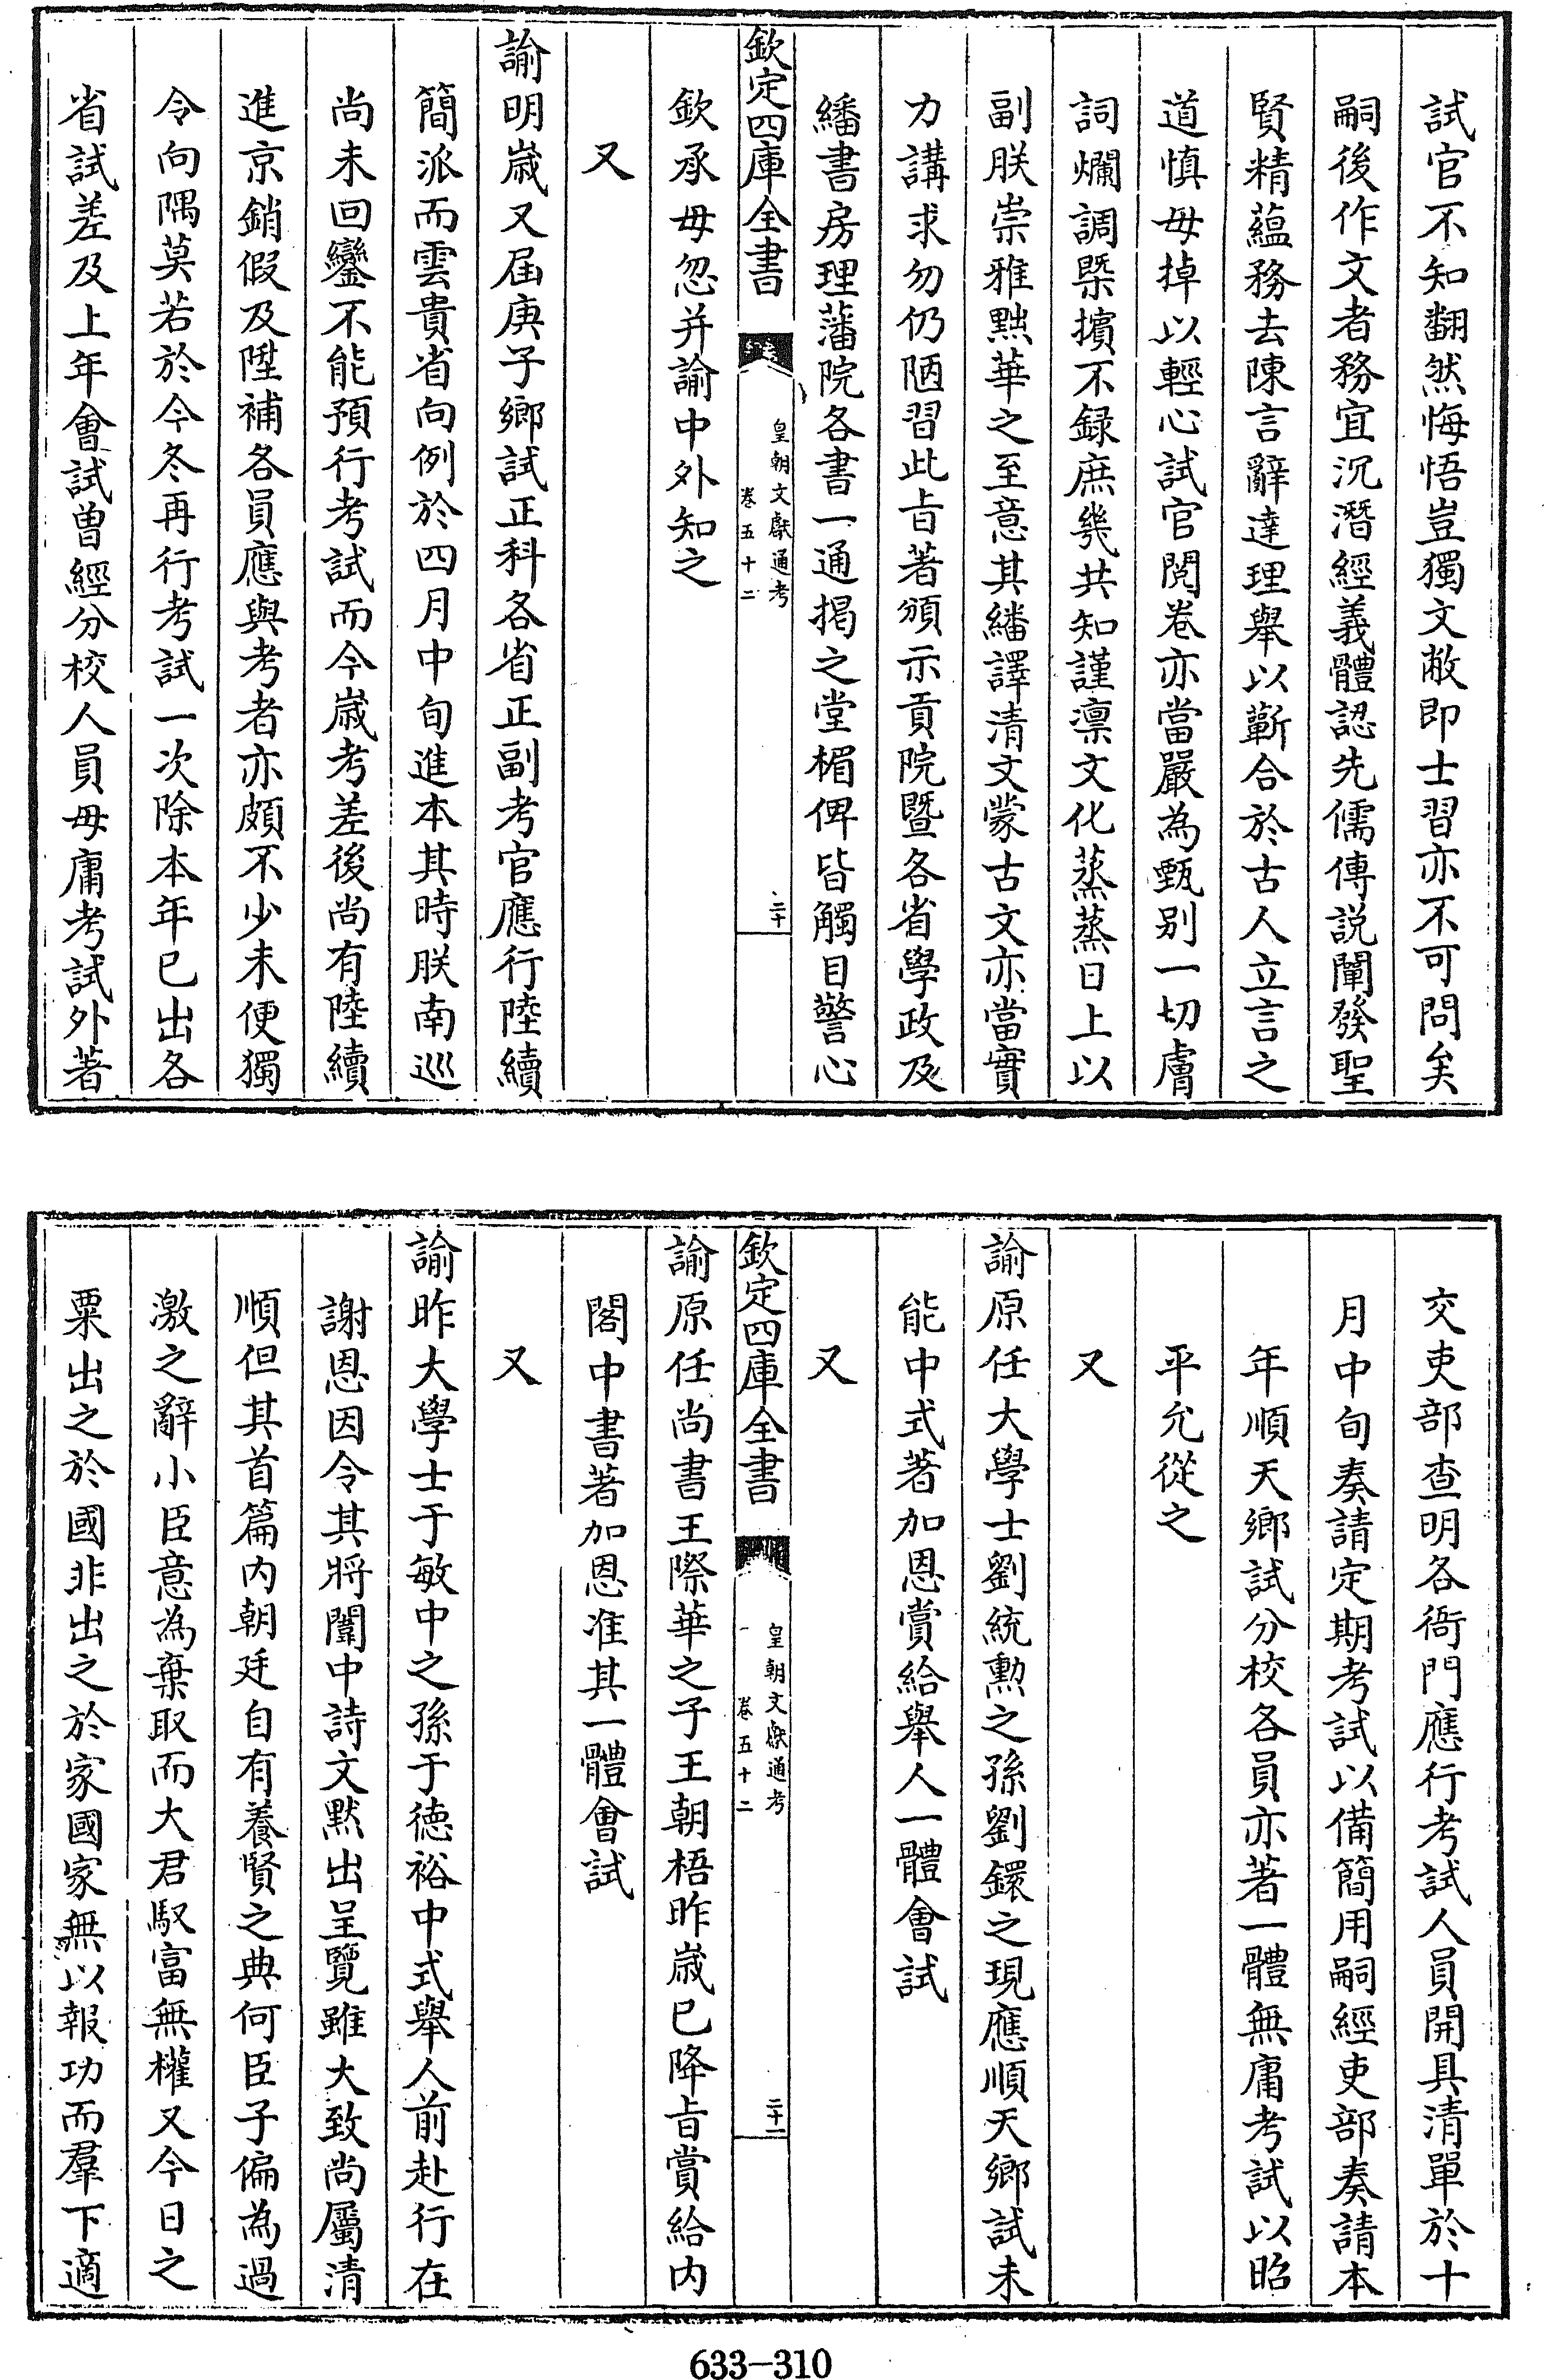 試官不知翻然悔悟豈獨文敝即士習亦不可問矣
嗣後作文者務宜沉潛經義體認先儒傳説闡發聖
賢精藴務去陳言辭達理舉以蘄合於古人立言之
道慎毋掉以輕心試官閲卷亦當嚴為甄别一切膚
詞爛調槩擯不録庶幾共知謹凛文化蒸蒸日上以
副朕崇雅黜華之至意其繙譯清文蒙古文亦當實
力講求勿仍陋習此㫖著頒示貢院暨各省學政及
繙書房理藩院各書一通揭之堂楣俾皆觸目警心
欽定四庫全書
皇朝文獻通考
卷五十二
二十
欽承毋忽并諭中外知之
又
諭明歲又屆庚子鄉試正科各省正副考官應行陸續
簡派而雲貴省向例於四月中旬進本其時朕南巡
尚未回鑾不能預行考試而今歲考差後尚有陸續
進京銷假及陞補各員應與考者亦頗不少未便獨
令向隅莫若於今冬再行考試一次除本年已出各
省試差及上年會試曾經分校人員毋庸考試外著
交吏部查明各衙門應行考試人員開具清單於十
月中旬奏請定期考試以備簡用嗣經吏部奏請本
年順天鄉試分校各員亦著一體無庸考試以昭
平允從之
又
諭原任大學士劉統勲之孫劉鐶之現應順天鄉試未
能中式著加恩賞給舉人一體會試
又
欽定四庫全書
皇朝文獻通考
卷五十二
二十一
諭原任尚書王際華之子王朝梧昨歲已降㫖賞給内
閣中書著加恩准其一體會試
又
諭昨大學士于敏中之孫于德裕中式舉人前赴行在
謝恩因令其將闈中詩文默出呈覽雖大致尚屬清
順但其首篇内朝廷自有養賢之典何臣子偏為過
激之辭小臣意為棄取而大君馭富無權又今日之
粟出之於國非出之於家國家無以報功而羣下適
633-310